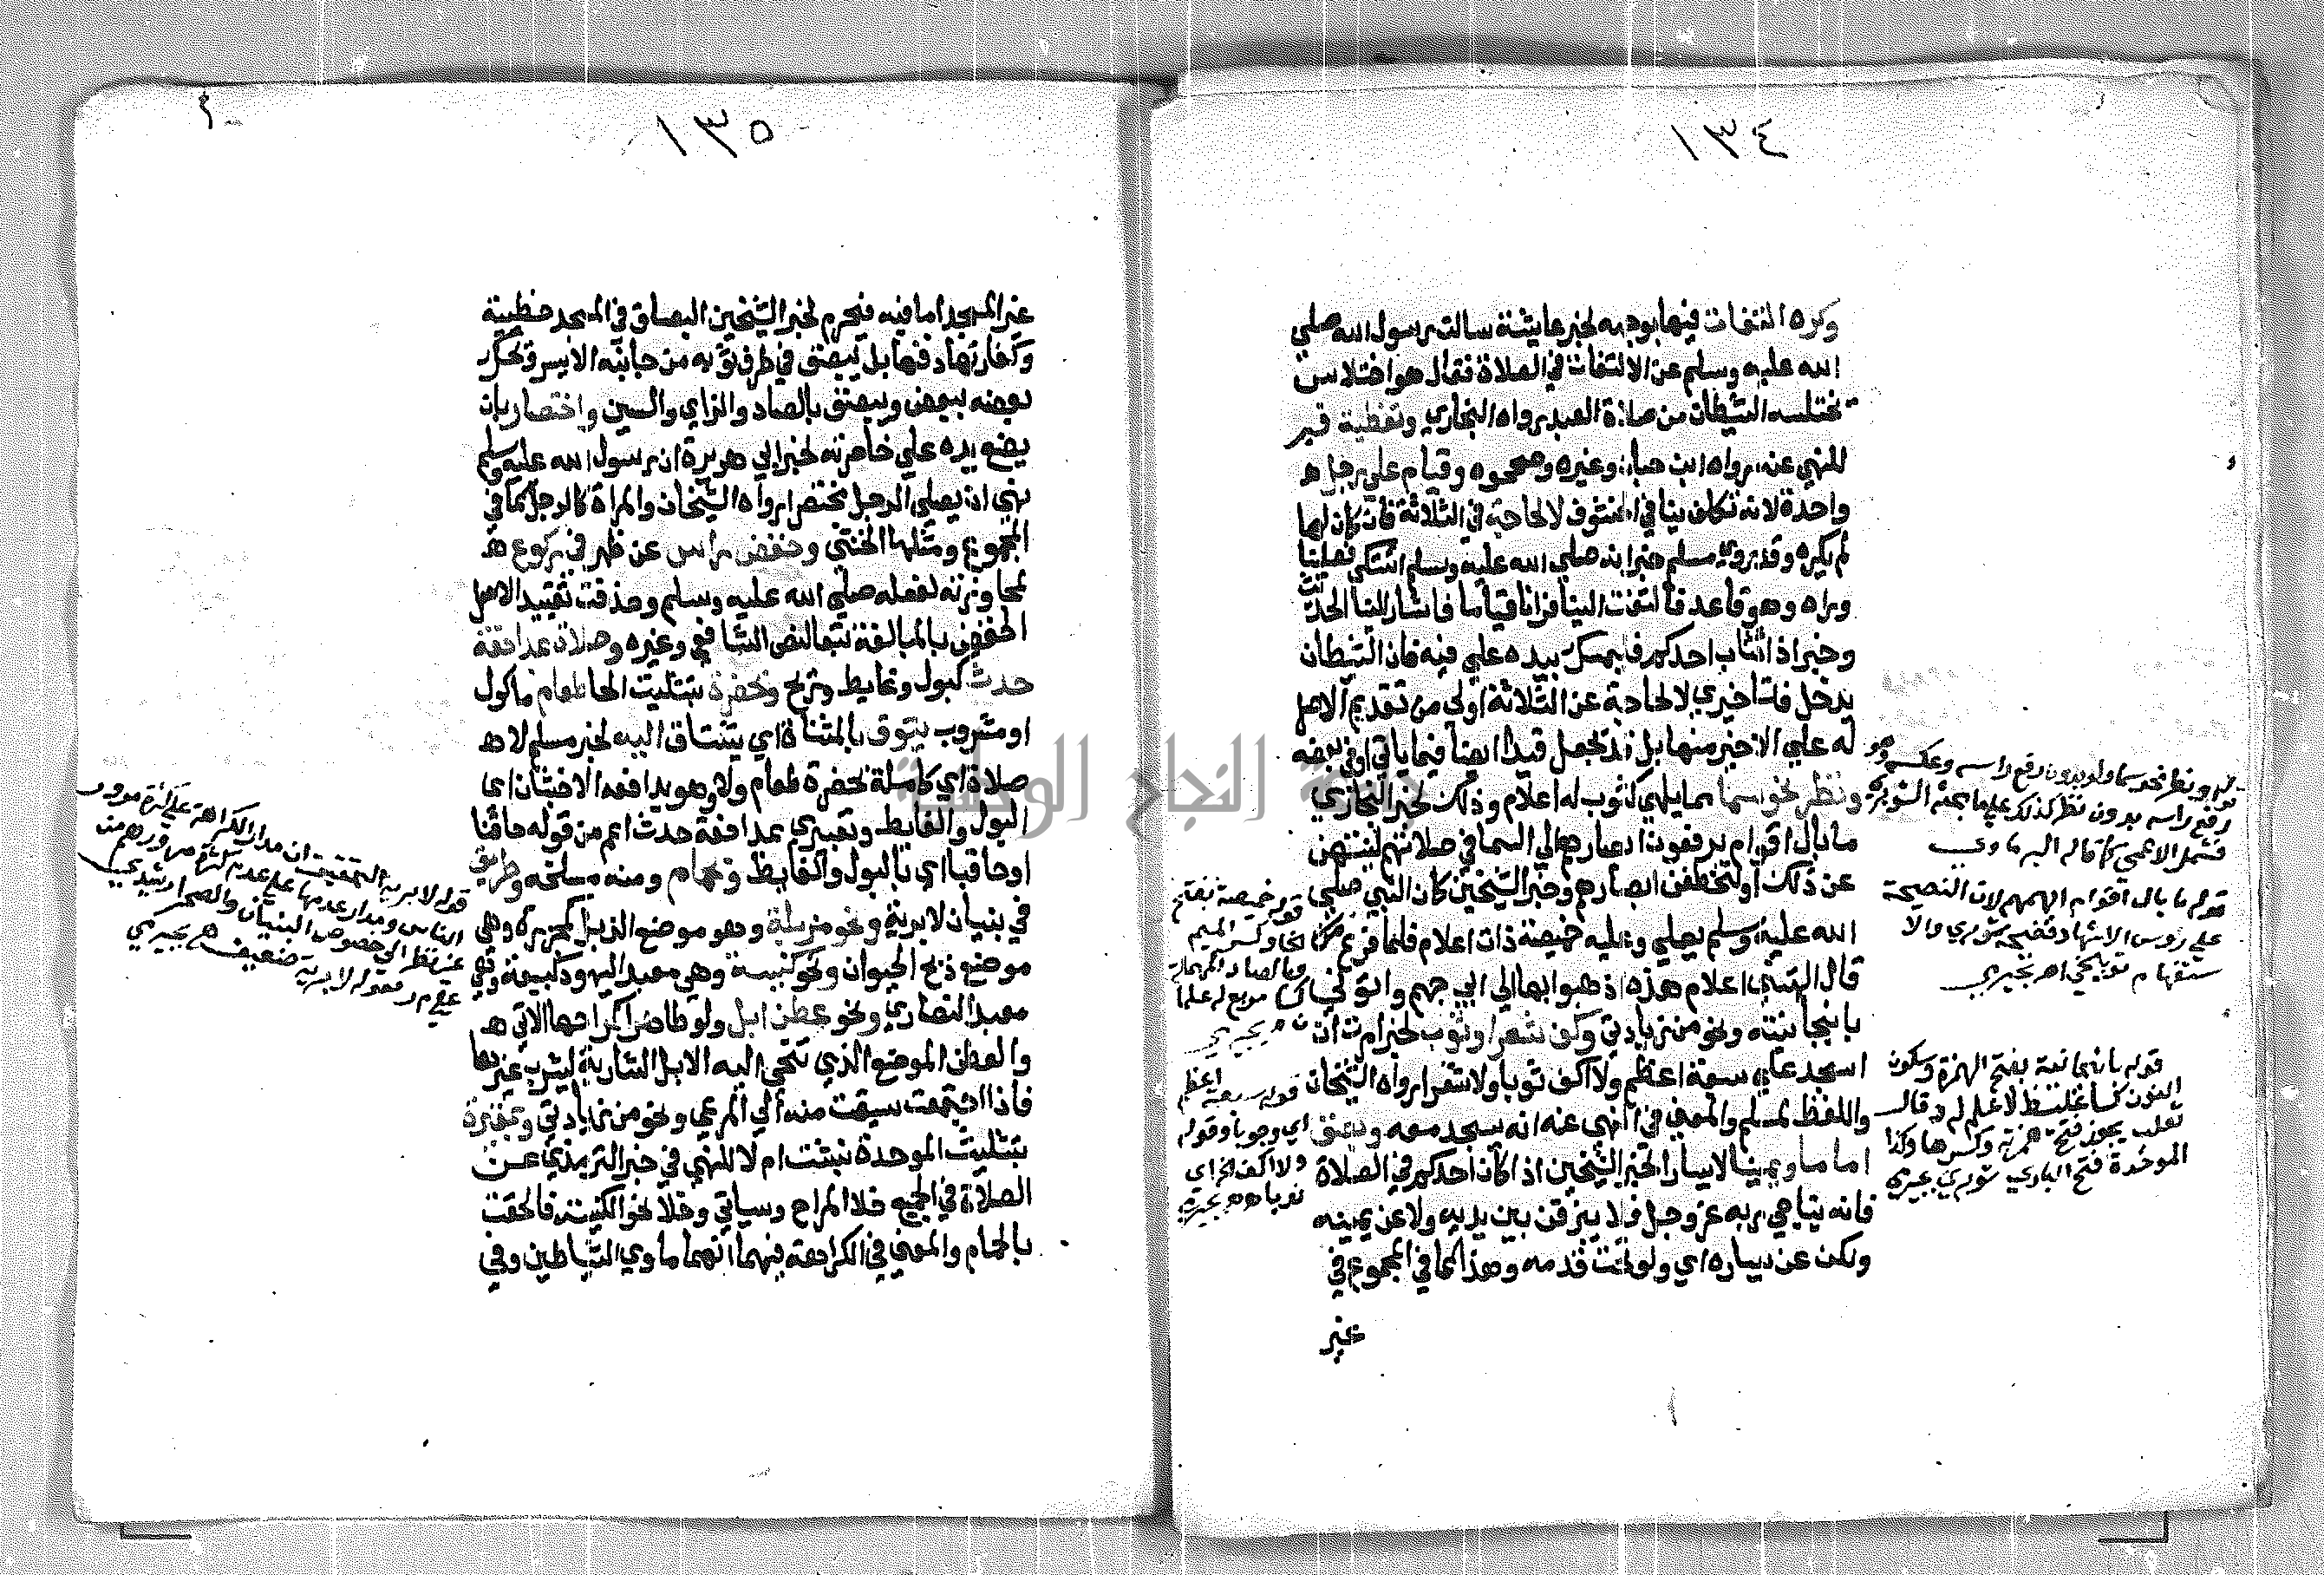 ١٣٤
وكره التفات فيها بوجه لخبر عايشة سالت رسول الله صلي
الله عليه وسلم عن الالتفات في الصلاة فقال هو اختلاس
يختلسه الشيطان من صلاة العبد رواه البخاري وتغطية فم
للنهي عنه رواه ابن حبان وغيره وصححوه وقيام علي رجل
واحدة لانه تكلف ينافي الخشوع لا لحاجة في الثلاثة فان كان لها
لم يكره وقد روي مسلم خبر انه صلي الله عليه وسلم اشتكي فصلينا
وراه وهو قاعد فالتفت الينا فرانا قياما فاشار الينا الحديث
وخبر اذا تثاب احدكم فليمسك بيده علي فيه فان الشيطان
يدخل فتاخيري لا لحاجة عن الثلاثة اولي من تقديم الاصل
له علي الاخير منها بل قد تجعل قيدا ايضا فيما ياتي او في بعضه
ونظر نحو سما مما يلهي كثوب له اعلام وذلك لخبر البخاري
ما بال اقوام يرفعون ابصارهم الي السما في صلاتهم لينتهن
عن ذلك او لتخطفن ابصارهم وخبر الشيخين كان النبي صلي
الله عليه وسلم يصلي وعليه خميصة ذات اعلام فلما فرغ
قال الهتني اعلام هذه اذهبوا بها الي ابي جهم واتوني
بانبجانيته ونحو من زيادتي وكف شعر او ثوب لخبر امرت ان
اسجد علي سبعة اعظم ولا اكف ثوبا ولا شعرا رواه الشيخان
واللفظ لمسلم والمعني في النهي عنه انه يسجد معه وبصق
اماما ويمينا لا يسارا لخبر الشيخين اذا كان احدكم في الصلاة
فانه يناجي ربه عز وجل فلا يبزقن بين يديه ولا عن يمينه
ولكن عن يساره اي ولو تحت قدمه وهذا كما في المجموع في
غير
رفع راسه بدون نظر كذلك
فشمل الاعمي كما قاله البرماوي
قوله ما بال اقوام ابهمهم لان النصيحة
علي روس الاشهاد فضيحة شوبري والا
ستفهام توبيخي اهـ بجيرمي
قوله بانبجانية بفتح الهمزة وسكون
النون كسا غليظ لا علم له وقال
ثعلب يجوز فتح همزته وكسرها وكذا
الموحدة فتح الباري شوبري بجيرمي
قوله خميصة بفتح
الخا وكسر الميم
وبالصاد المهملة
كسا مربع له علما
ن اهـ بجيرمي
قوله سبعة اعظم
اي وجوبا وقوله
ولا اكف الخ اي
ندبا اهـ بجيرمي
١٣٥
غير المسجد اما فيه فيحرم لخبر الشيخين البصاق في المسجد خطيية
وكفارتها دفنها بل يبصق في طرف ثوبه من جانبه الايسر ويحك
بعضه ببعض ويبصق بالصاد والزاي والسين واختصار بان
يضع يده علي خاصرته لخبر ابي هريرة ان رسول الله عليه وسلم
نهي ان يصلي الرجل مختصرا رواه الشيخان والمراة كالرجل كما في
المجموع ومثلها الخنثي وخفض راس عن ظهر في ركوع
لمجاوزته لفعله صلي الله عليه وسلم وحذفت تقييد الاصل
الخفض بالمبالغة تبعا لنص الشافعي وغيره وصلاة بمدافعة
حدث كبول وغايط وريح وبحضرة بتثليث الحا طعام ماكول
او مشروب يتوق بالمثناة اي يشتاق اليه لخبر مسلم لا
صلاة اي كاملة بحضرة طعام ولا وهو يدافعه الاخبثان اي
البول والغايط وتعبيري بمدافعة حدث اعم من قوله حاقنا
او حاقبا اي بالبول والغايط وبحمام ومنه مسلخه وطريق
في بنيان لا برية ونحو مزبلة وهو موضع الزبل كمجزرة وهي
موضع ذبح الحيوان ونحو كنيسة وهي معبد اليهود كبيعة وهي
معبد النصاري ونحو عطن ابل ولو طاهرا كمراحها الاتي
والعطن الموضع الذي تنحي اليه الابل الشاربة ليشرب غيرها
فاذا اجتمعت سيقت منه الي المرعي ونحو من زيادتي وبمقبرة
بتثليث الموحدة نبشت ام لا للنهي في خبر الترمذي عن
الصلاة في الجميع خلا المراح وسياتي وخلا نحو الكنيسة فالحقت
بالحمام والمعني في الكراهة فيهما انهما ماوي الشياطين وفي
قوله لا برية التحقيق ان مدار الكراهة علي كثرة مرور
الناس ومدار عدمها علي عدم كثرة مرورهم من
غير نظر الي خصوص البنيان والصحرا رشيدي
فقوله لا برية ضعيف اهـ بجيرمي